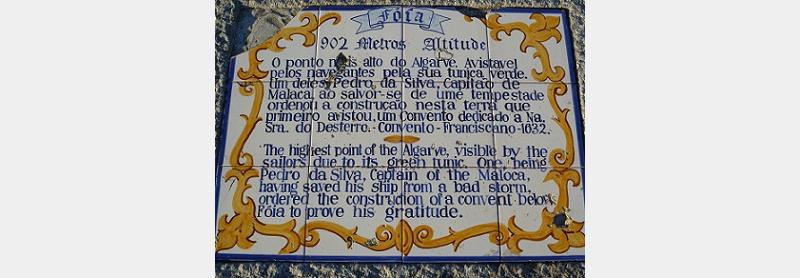 Fóia
902 Metros Altitude
O ponto mais alto do Algarve. Avistavel
pelos navegantes pela sua tunica verde.
Um deles, Pedro da Silva, Capitão de
Malaca, ao salvar-se de ume tempestade
ordenou a construção nesta terra que
primeiro avistou, um Convento dedicado a Na.
Sra. do Desterro.-Convento-Franciscano-1632.
The highest point of the Algarve, visible by the
sailors due to its green tunic. One, being
Pedro da Silva, Captain of the Maloca,
having saved his ship from a bad storm,
ordered the construcion of a convent below
Fóia to prove his gratitude.